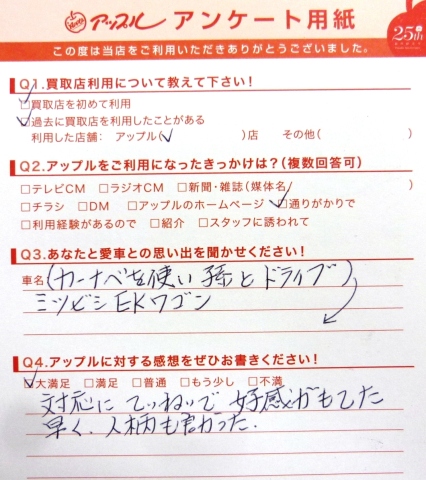 アップル アンケート用紙
25th
この度は当店をご利用いただきありがとうございました。
Q1.買取店利用について教えて下さい!
□買取店を初めて利用
□過去に買取店を利用したことがある
利用した店舗: アップル( )店 その他(
Q2.アップルをご利用になったきっかけは?(複数回答可)
□テレビCM □ラジオCM □新聞・雑誌(媒体名 )
□チラシ □DM □アップルのホームページ □通りがかりで
□利用経験があるので □紹介 □スタッフに誘われて
Q3.あなたと愛車との思い出を聞かせください!
車名(カーナベを使い 孫とドライブ)
ミツビシ EKワゴン
Q4.アップルに対する感想をぜひお書きください!
□大満足 □満足 □普通 □もう少し □不満
対応に ていねいで 好感がもてた
早く、人柄も良かった.